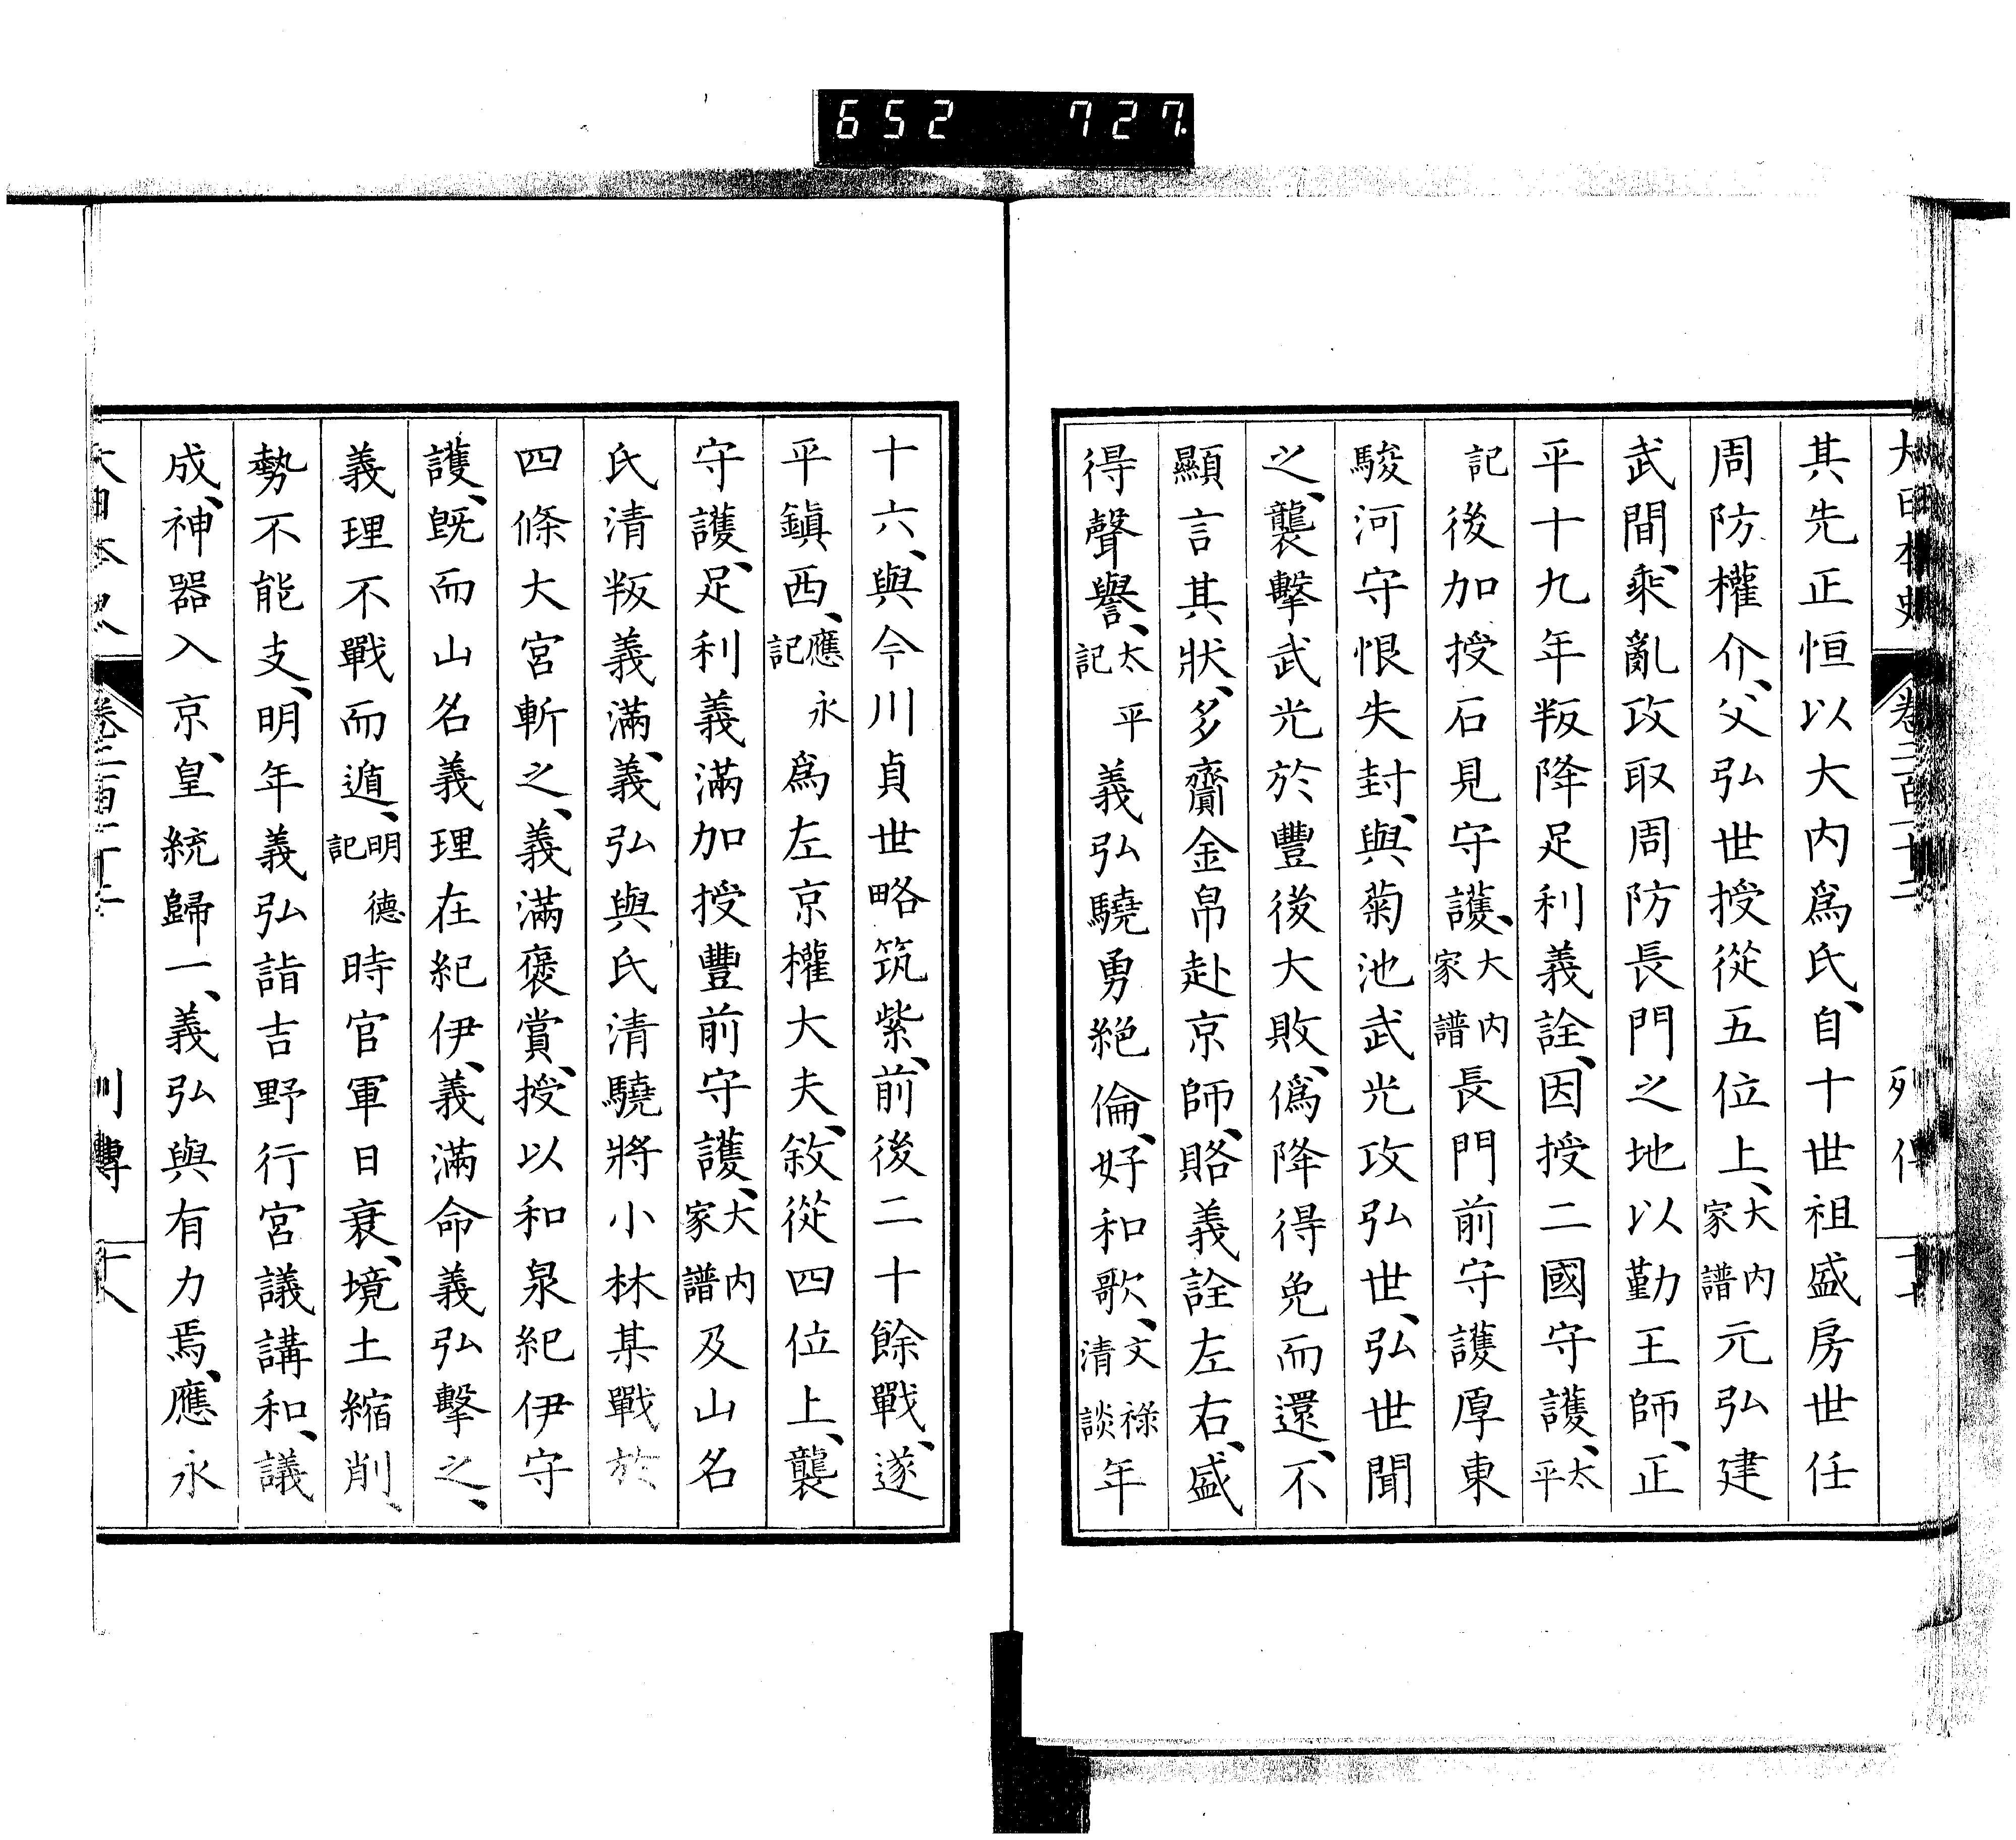 652 727
大日本史 卷二百二十二 列傳
其先正恒以大内爲氏、自十世祖盛房世任
周防權介、父弘世授從五位上、大内家譜元弘建
武間、乘亂攻取周防長門之地以勤王師、正
平十九年叛降足利義詮、因授二國守護、太平
記後加授石見守護、大内家譜長門前守護厚東
駿河守恨失封、與菊池武光攻弘世、弘世聞
之、襲擊武光於豐後大敗、僞降得免而還、不
顯言其狀、多齎金帛赴京師、賂義詮左右、盛
得聲譽、太平記義弘驍勇絕倫、好和歌、文祿清談年
十六、與今川貞世略筑紫、前後二十餘戰、遂
平鎭西、應永記爲左京權大夫、敘從四位上、襲
守護、足利義滿加授豐前守護、大内家譜及山名
氏清叛義滿、義弘與氏清驍將小林某戰於
四條大宮斬之、義滿褒賞、授以和泉紀伊守
護、既而山名義理在紀伊、義滿命義弘擊之、
義理不戰而遁、明德記時官軍日衰、境土縮削、
勢不能支、明年義弘詣吉野行宮議講和、議
成、神器入京、皇統歸一、義弘與有力焉、應永
大日本史 列傳